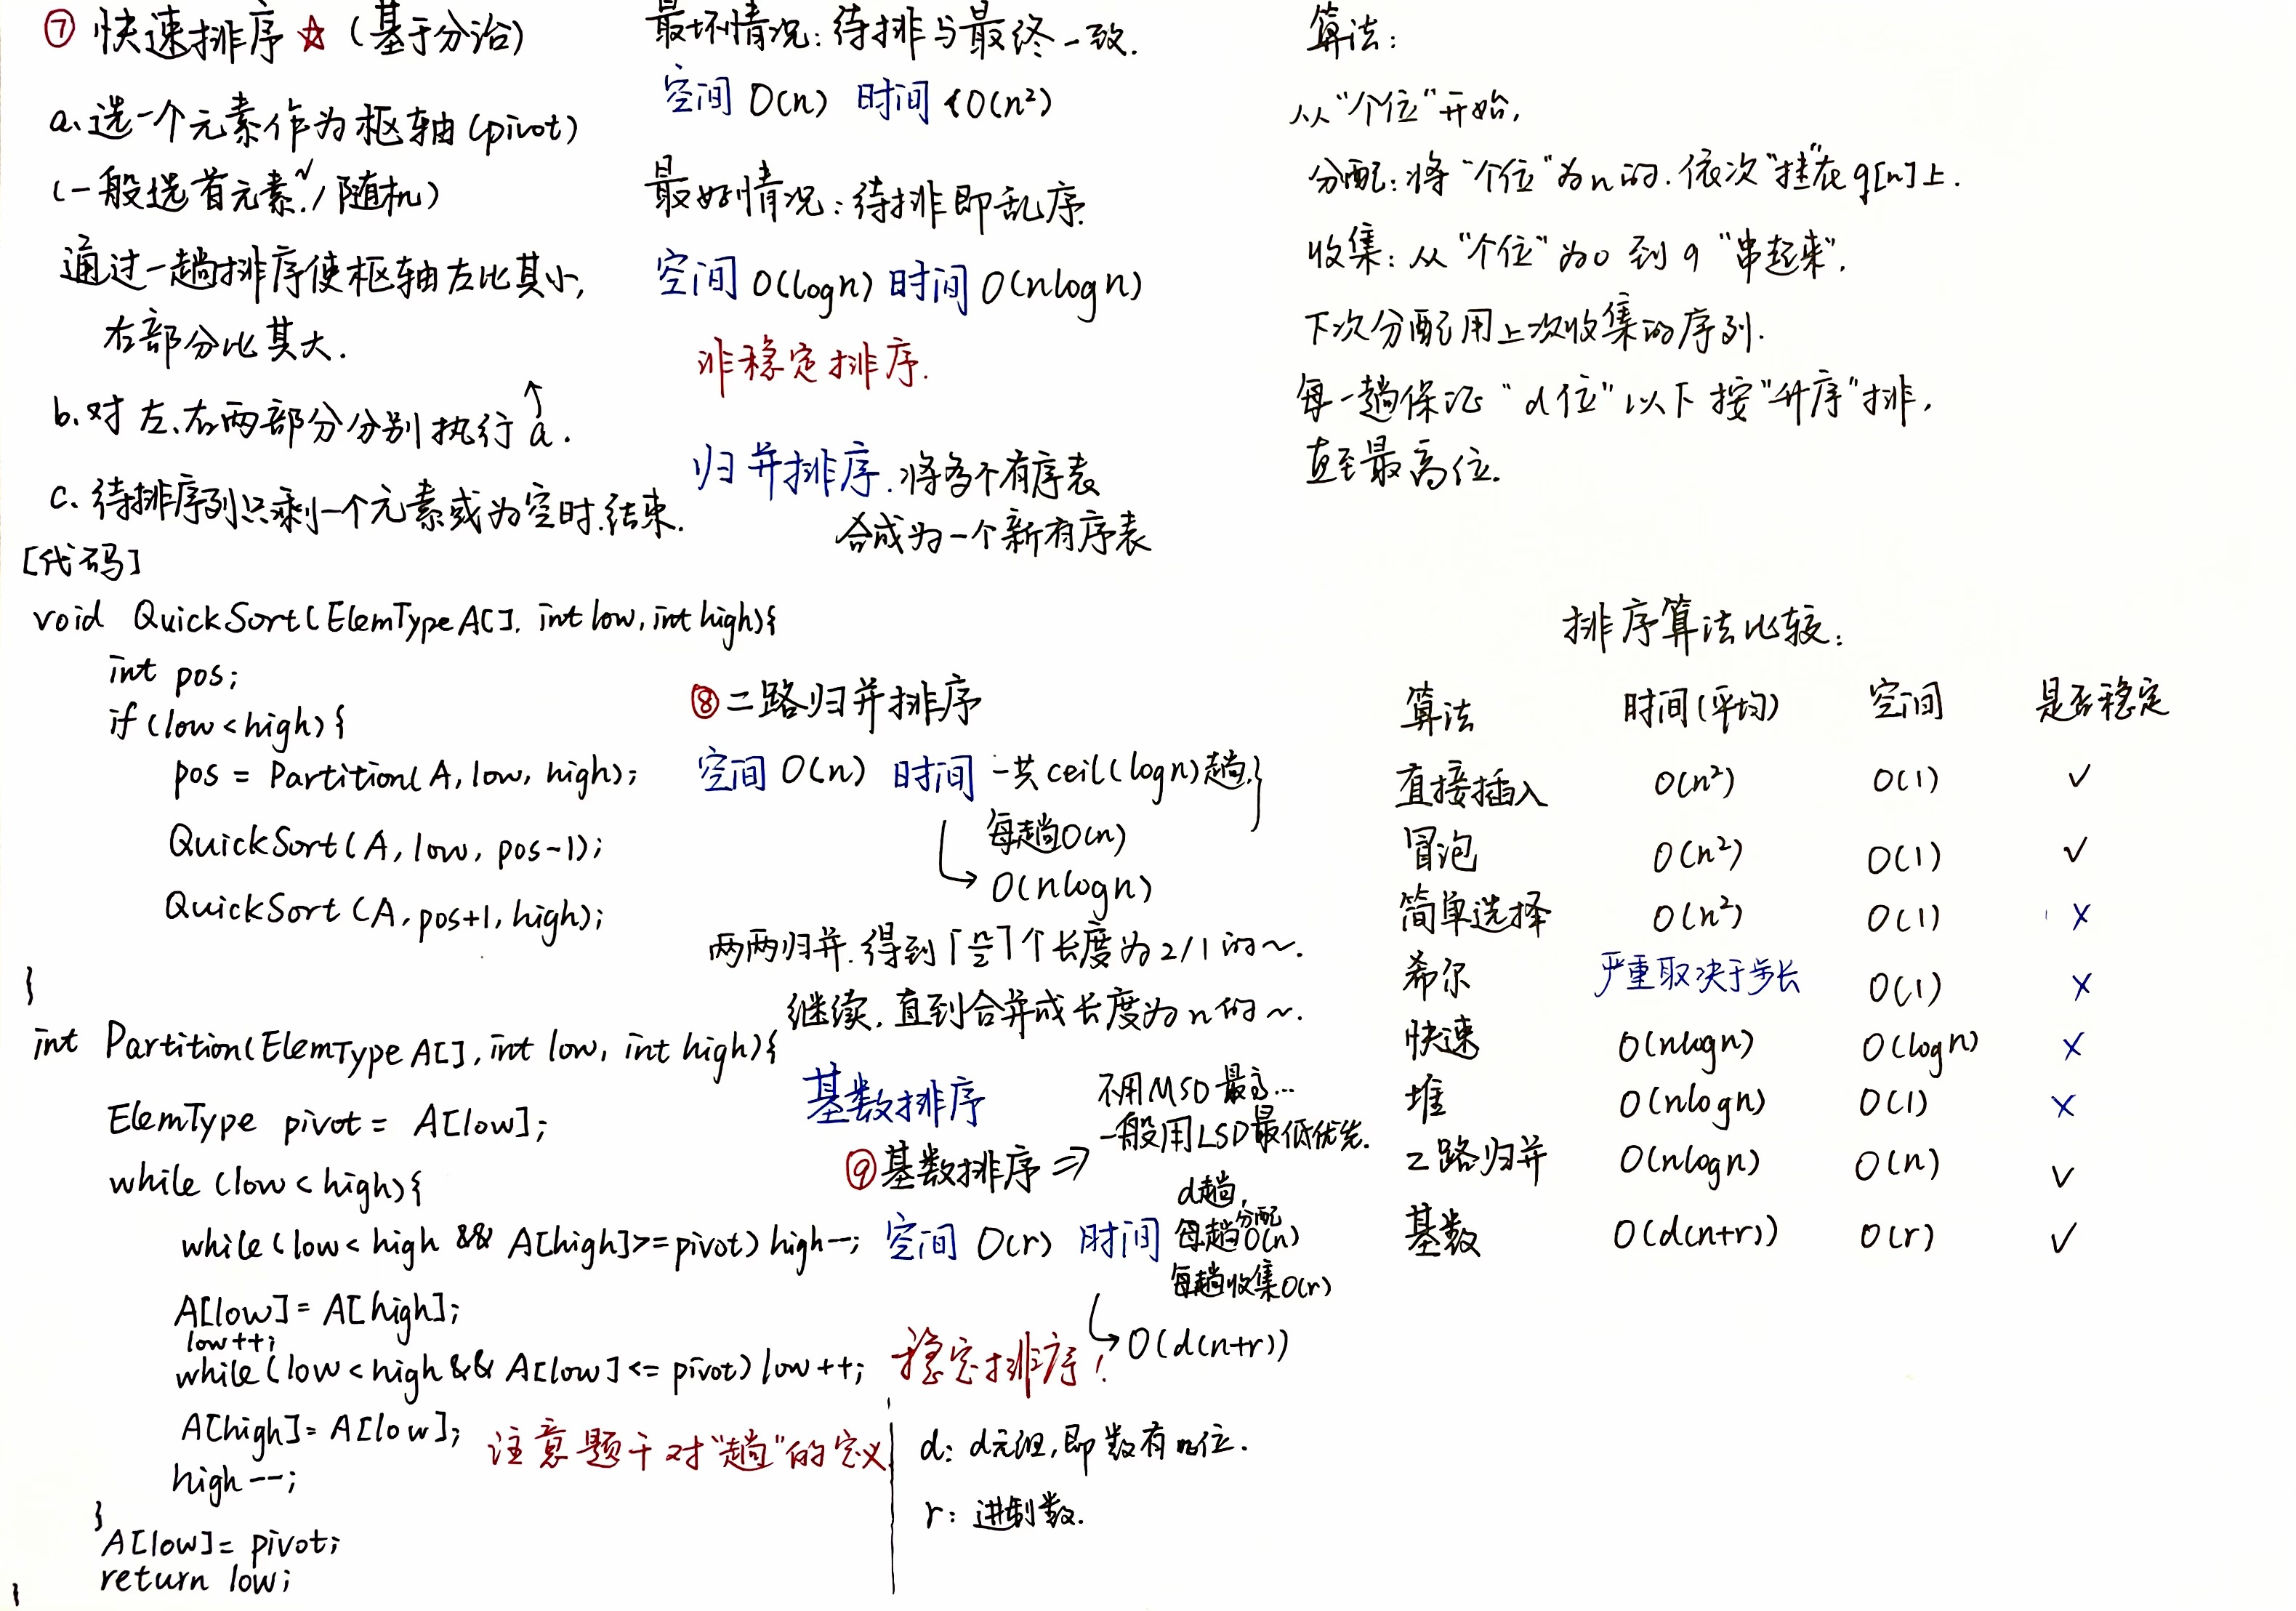 ⑦ 快速排序 ☆ (基于分治)
a.选一个元素作为枢轴(pivot)
(一般选首元素√/随机)
通过一趟排序使枢轴左比其小,
右部分比其大.
↑
b.对左、右两部分分别执行a.
c.待排序列只剩一个元素或为空时.结束.
[代码]
void QuickSort(ElemType A[], int low, int high){
int pos;
if (low < high) {
pos = Partition(A, low, high);
QuickSort(A, low, pos-1);
QuickSort(A, pos+1, high);
}
int Partition(ElemType A[], int low, int high){
ElemType pivot = A[low];
while (low < high){
while (low < high && A[high]>=pivot) high--;
A[low] = A[high];
low++;
while (low < high && A[low] <= pivot) low++;
A[high] = A[low];
high--;
}
A[low] = pivot;
return low;
}
注意题干对"趟"的定义
最坏情况:待排与最终一致.
空间 O(n) 时间 O(n²)
最好情况:待排即乱序.
空间 O(logn) 时间 O(nlogn)
非稳定排序.
归并排序.将多个有序表
合成为一个新有序表
⑧二路归并排序
空间 O(n) 时间 一共ceil(logn)趟,}
每趟O(n)
↳ O(nlogn)
两两归并.得到⌈n/2⌉个长度为2/1的~.
继续,直到合并成长度为n的~.
基数排序
不用MSD最高...
一般用LSD最低优先.
⑨基数排序 ⇒
空间 O(r) 时间
d趟,
每趟分配O(n)
每趟收集O(r)
↳ O(d(n+r))
稳定排序!
d: d元组,即数有n位.
r: 进制数.
算法:
从"个位"开始,
分配:将"个位"为n的.依次"挂"在q[n]上.
收集:从"个位"为0到9"串起来".
下次分配用上次收集的序列.
每一趟保证"d位"以下按"升序"排,
直至最高位.
排序算法比较:
算法 时间(平均) 空间 是否稳定
直接插入 O(n²) O(1) ✓
冒泡 O(n²) O(1) ✓
简单选择 O(n²) O(1) ×
希尔 严重取决于步长 O(1) ×
快速 O(nlogn) O(logn) ×
堆 O(nlogn) O(1) ×
二路归并 O(nlogn) O(n) ✓
基数 O(d(n+r)) O(r) ✓